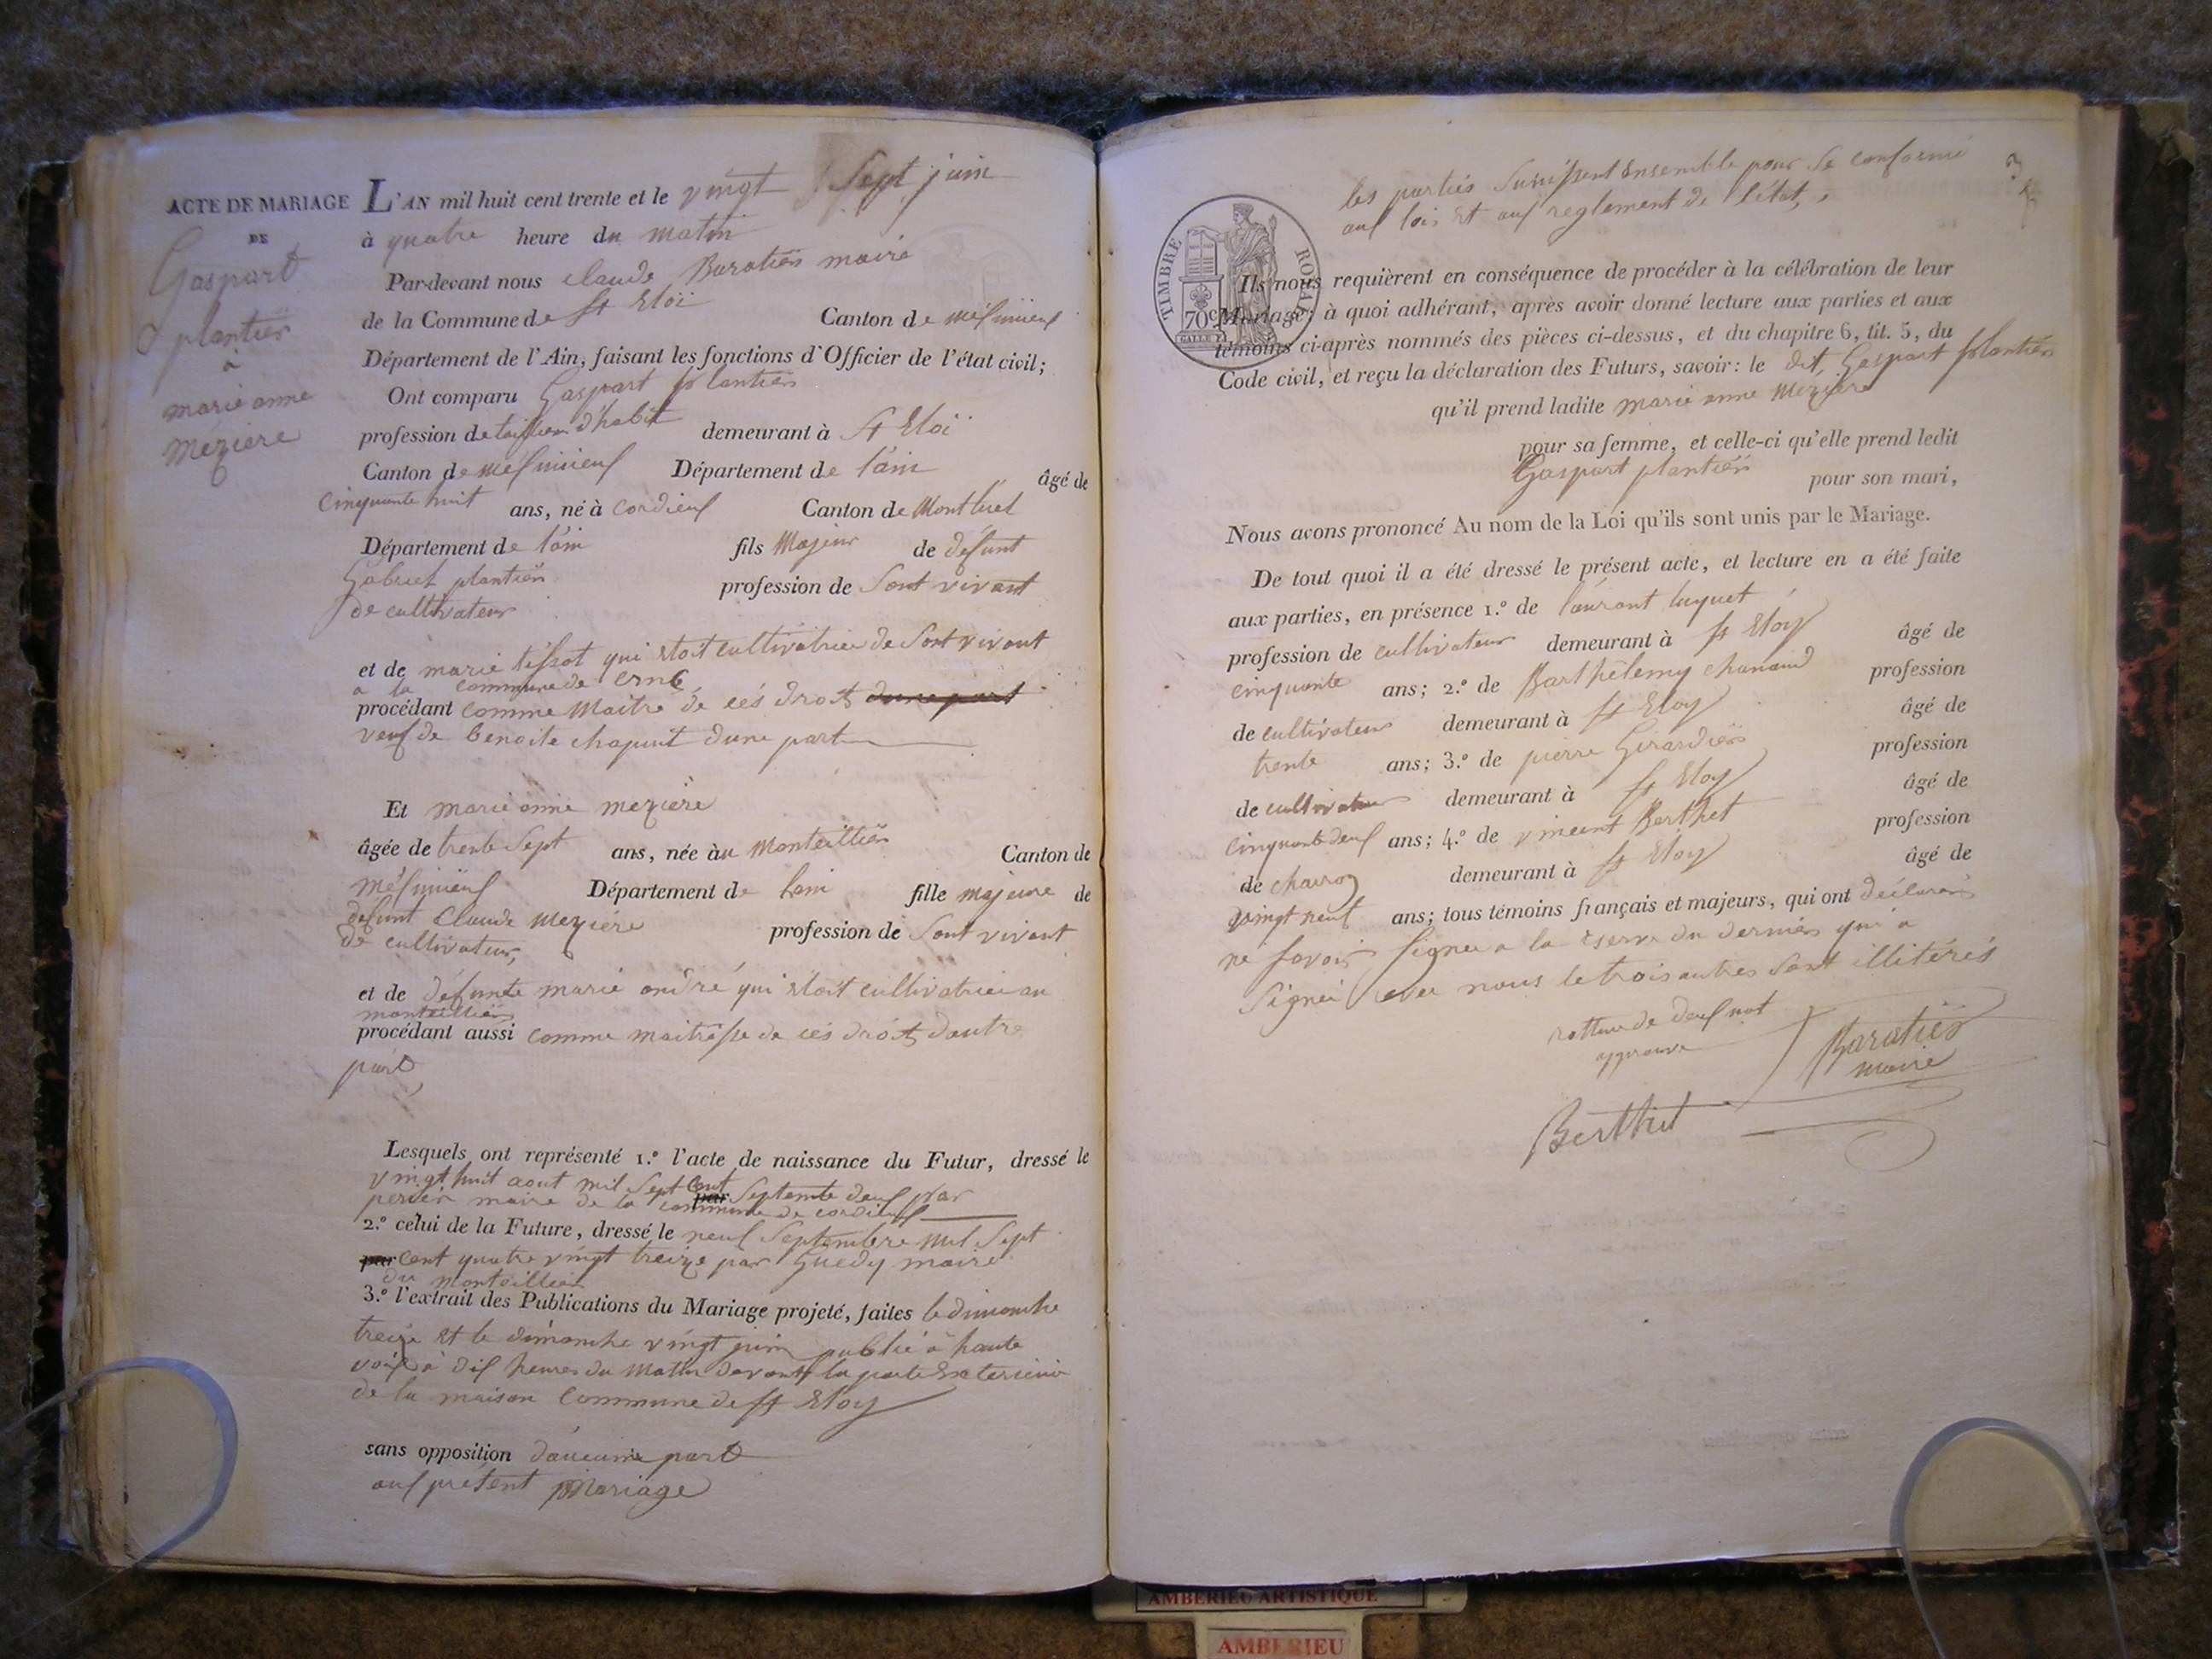 ACTE DE MARIAGE
DE
Gaspart
plantier
à
marie anne
mézière
L'AN mil huit cent trente et le vingt Sept juin
à quatre heure du matin
Par-devant nous Claude Baratier maire
de la Commune de St Eloi Canton de méssimieux
Département de l'Ain, faisant les fonctions d'Officier de l'état civil;
Ont comparu Gaspart plantier
profession de tailleur d'habit demeurant à St Eloi
Canton de méssimieux Département de l'ain âgé de
cinquante huit ans, né à cordieux Canton de Montluel
Département de l'ain fils Majeur de défunt
Gabriel plantier profession de Sont vivant
de cultivateur
et de marie tissot qui étoit cultivatrice de Sont vivant
a la commune de
procédant comme Maitre de cés droit dune part
veuf de benoite chapuit dune part
Et marie anne mezière
âgée de trente Sept ans, née àu Monteillier Canton de
méssimieux Département de lain fille majeure de
défunt Claude Mezière profession de Sont vivant
de cultivateur,
et de défunte marie andré qui étoit cultivatrice au
monteillier
procédant aussi comme maitresse de cés droit dautre
part,
Lesquels ont représenté 1.º l'acte de naissance du Futur, dressé le
vingt huit aout mil Sept cent par Septente deux par
perrier maire de la commune de cordieux
2.º celui de la Future, dressé le neuf Septembre mil Sept
par cent quatre vingt treize par Guedy maire
du monteillier
3.º l'extrait des Publications du Mariage projeté, faites le dimanche
treize et le dimanche vingt juin publié à haute
voix à dix heures du Matin devant la porte Exterieure
de la maison Commune de St Eloy
sans opposition d'aucune part
aux présent Mariage
les parties Sunissent Ensemble pour Se conformé
aux lois et aux reglement de l'état,
TIMBRE ROYAL
70c
Ils nous requièrent en conséquence de procéder à la célébration de leur
Mariage; à quoi adhérant, après avoir donné lecture aux parties et aux
témoins ci-après nommés des pièces ci-dessus, et du chapitre 6, tit. 5, du
Code civil, et reçu la déclaration des Futurs, savoir: le dit, Gaspart plantier
qu'il prend ladite marie anne Mezière
pour sa femme, et celle-ci qu'elle prend ledit
Gaspart plantier pour son mari,
Nous avons prononcé Au nom de la Loi qu'ils sont unis par le Mariage.
De tout quoi il a été dressé le présent acte, et lecture en a été faite
aux parties, en présence 1.º de l'aurant luquet
profession de cultivateur demeurant à St Eloy âgé de
cinquante ans; 2.º de Barthélemy chanaud profession
de cultivateur demeurant à St Eloy âgé de
trente ans; 3.º de pierre Girardier profession
de cultivateur demeurant à St Eloy âgé de
cinquante deux ans; 4.º de vincent Berthet profession
de charron demeurant à St Eloy âgé de
vingt neuf ans; tous témoins français et majeurs, qui ont déclarés
ne savoir Signer a la éserve du dernier qui a
Signé avec nous le trois autres Sont illitérés
ratture de deux mot
approuvé
Baratier
maire
Berthet
AMBERIEU ARTISTIQUE
AMBERIEU